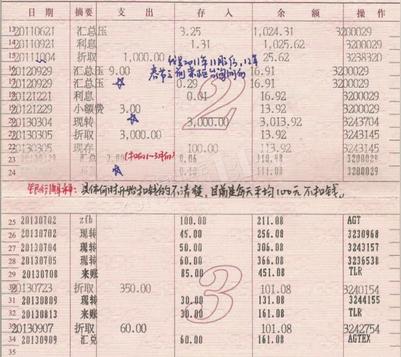 日期 摘要 支出 存入 余额 操作
13 20110621 汇总压 3.25 1,024.31 3200029
14 20110921 利息 1.31 1,025.62 3200029
15 20111104 折取 1,000.00 25.62 3238320
16 20120929 汇总压 9.00 16.91 3200029
17 20120929 汇总压 0.29 16.91 3200029
20121221 利息 0.01 16.92 3200029
20121229 小额费 3.00 13.92 3200029
20130304 现转 3,000.00 3,013.92 3243704
20130305 折取 3,000.00 13.92 3243145
22 20130305 现存 100.00 113.92 3243145
23 3.00 0.06 3200029
24 3200029
银行解释: 具体何时开始扣钱的不清楚,目前是每天平均100元不扣钱。
25 20130702 zfb 100.00 211.08 AGT
26 20130704 现转 45.00 256.08 3230968
27 20130704 现转 50.00 306.08 3243157
28 20130705 现转 60.00 366.08 3236538
29 20130708 来账 85.00 451.08 TLR
30 20130723 折取 350.00 101.08 3240154
31 20130809 现转 30.00 131.08 3244155
32 20130813 来账 30.00 161.08 TLR
33 20130907 折取 60.00 101.08 3242754
34 20130909 汇兑 60.00 161.08 AGTEX
35